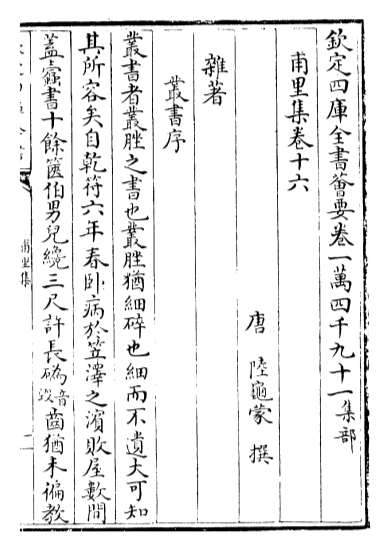 欽定四庫全書薈要卷一萬四千九十一集部
甫里集卷十六
唐 陸龜蒙 撰
雜著
叢書序
叢書者叢脞之書也叢脞猶細碎也細而不遺大可知
其所容矣自乾符六年春卧病於笠澤之濵敗屋數間
蓋蠹書十餘篋伯男兒纔三尺許長䃺音毀齒猶未徧教
甫里集